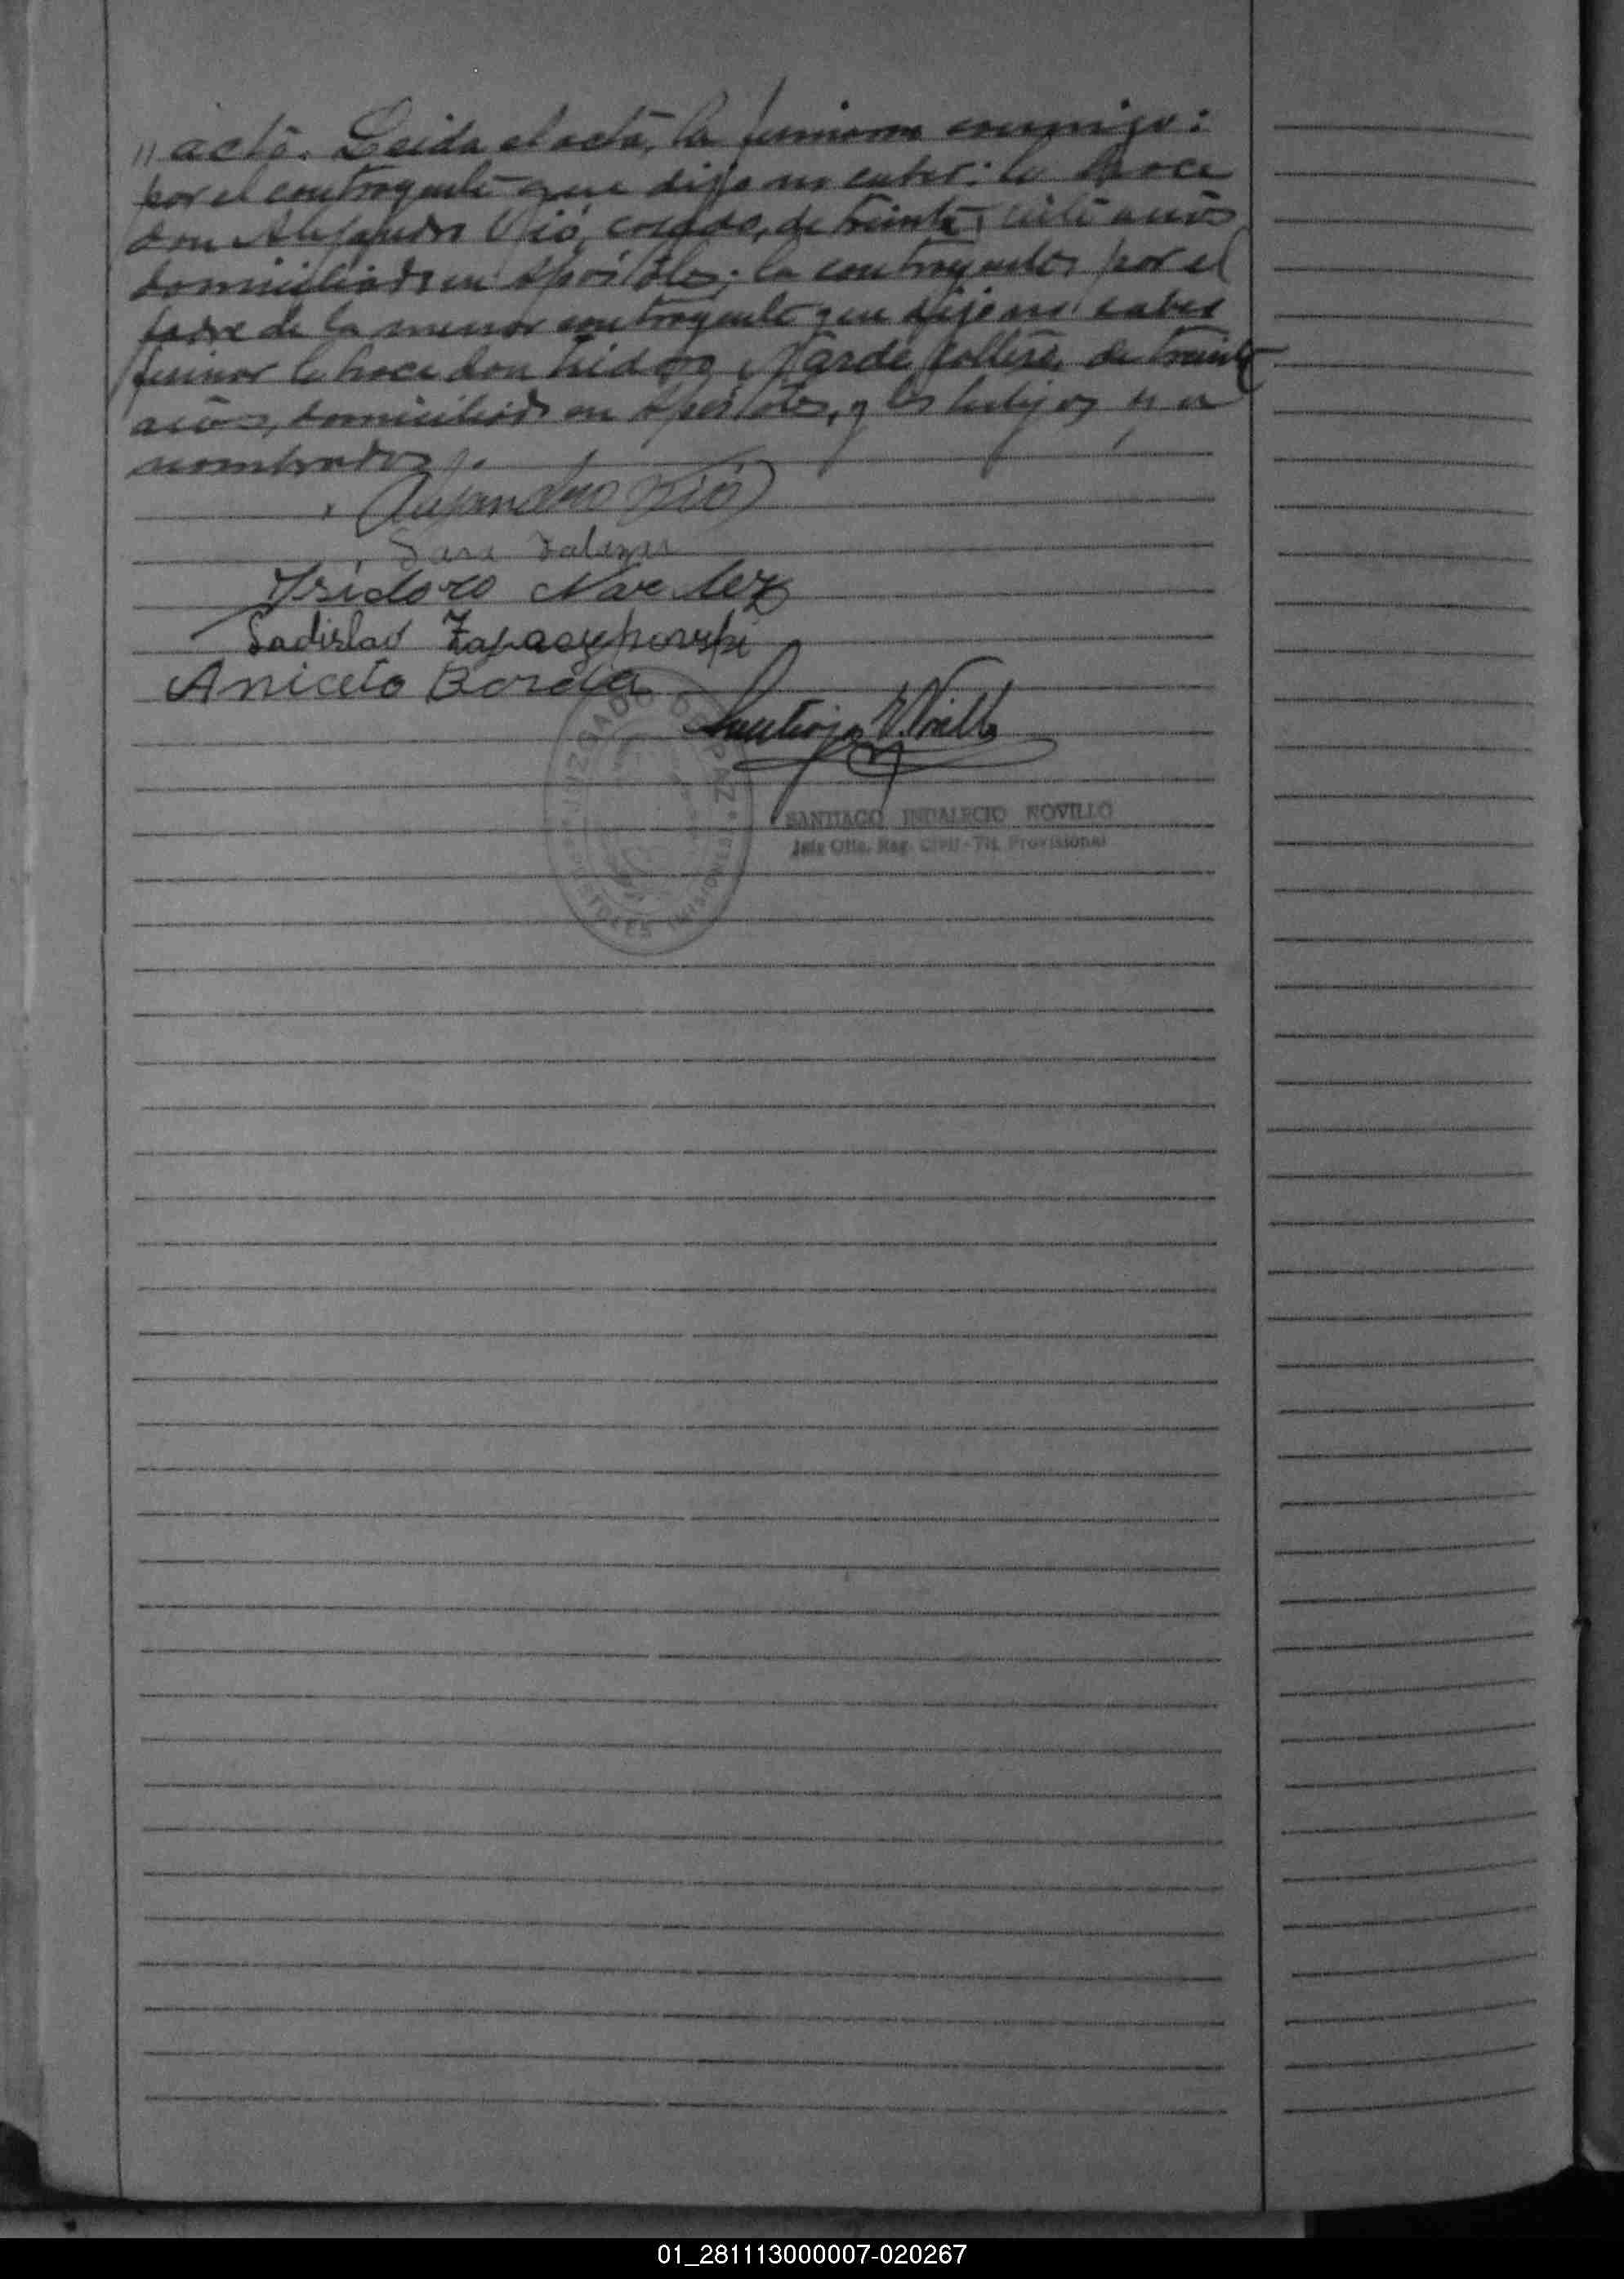 " acto. Leida el acta, la firmaron conmigo:
por el contrayente que dijo no saber: lo hace
don Alejandro Rió, casado, de treinta y siete años
domiciliado en Apóstoles; la contrayente por el
padre de la menor contrayente que dijo no saber
firmar lo hace don Isidoro soltero, de treinta
años, domiciliado en Apóstoles, y los testigos ya
nombrados.
Alejandro Rió
Sara
Isidoro
Ladislao
Aniceto Borda
JUZGADO DE PAZ
APOSTOLES (MISIONES)
SANTIAGO INDALECIO NOVILLO
Jefe Ofic. Reg. Civil - Tit. Provisional
01_281113000007-020267